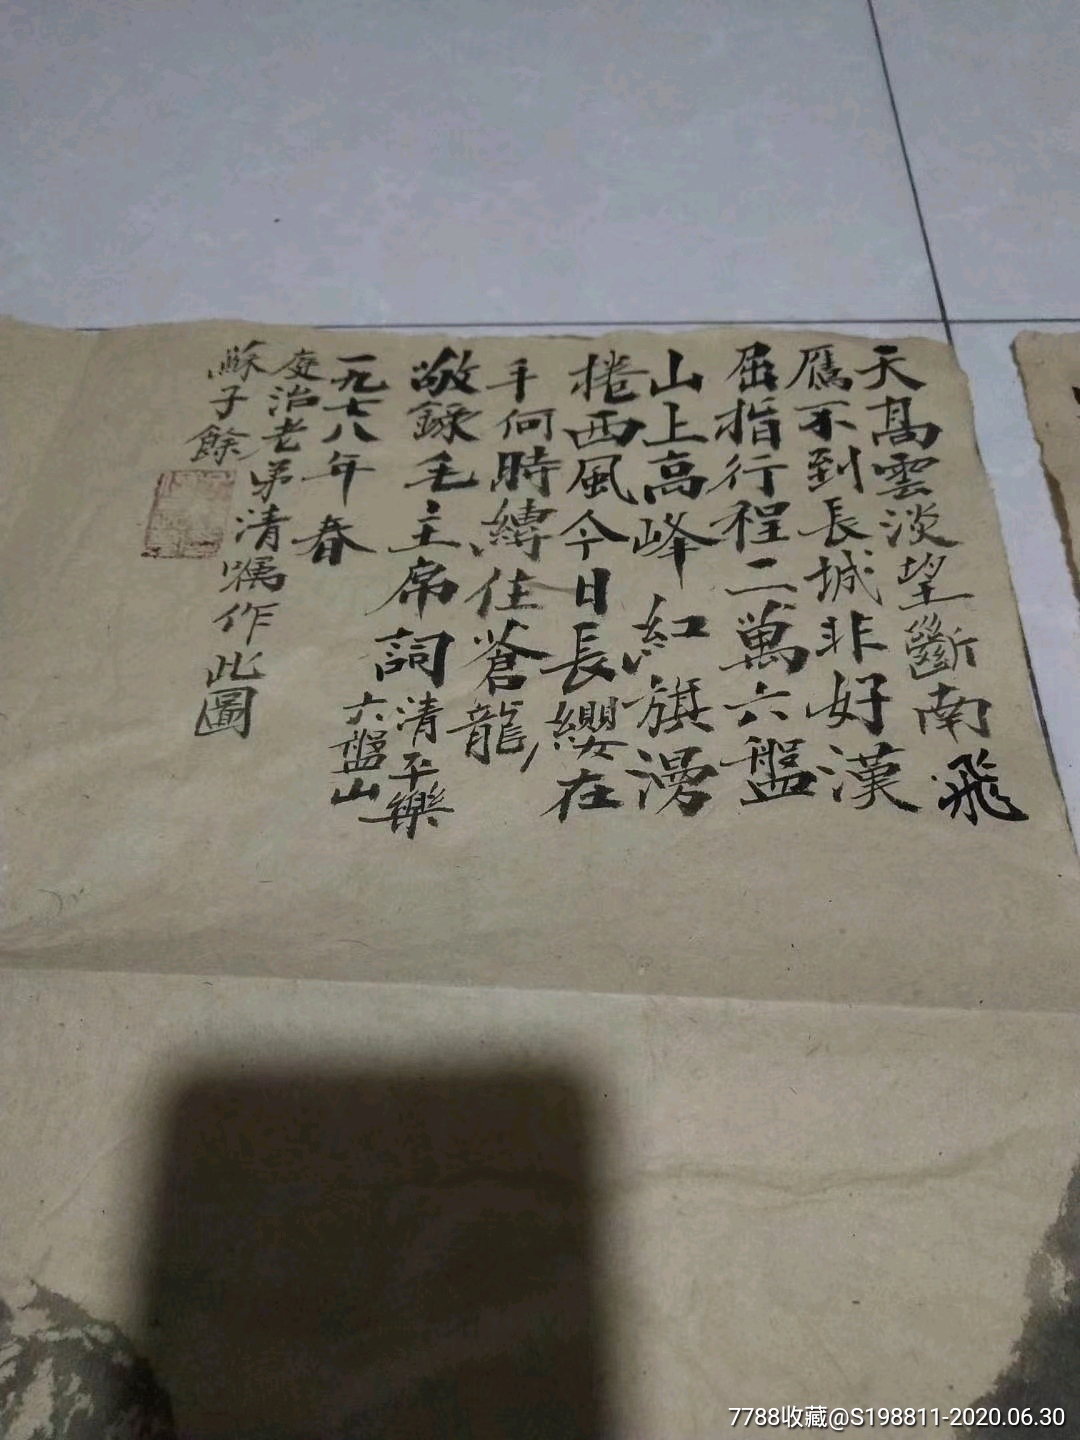 天高雲淡望斷南飛
雁不到長城非好漢
屈指行程二萬六盤
山上高峰紅旗漫
捲西風今日長纓在
手何時縛住蒼龍
敬錄毛主席詞清平樂
六盤山
一九七八年春
庭治老弟清嘱作此圖
蘇子餘
7788收藏@S198811-2020.06.30